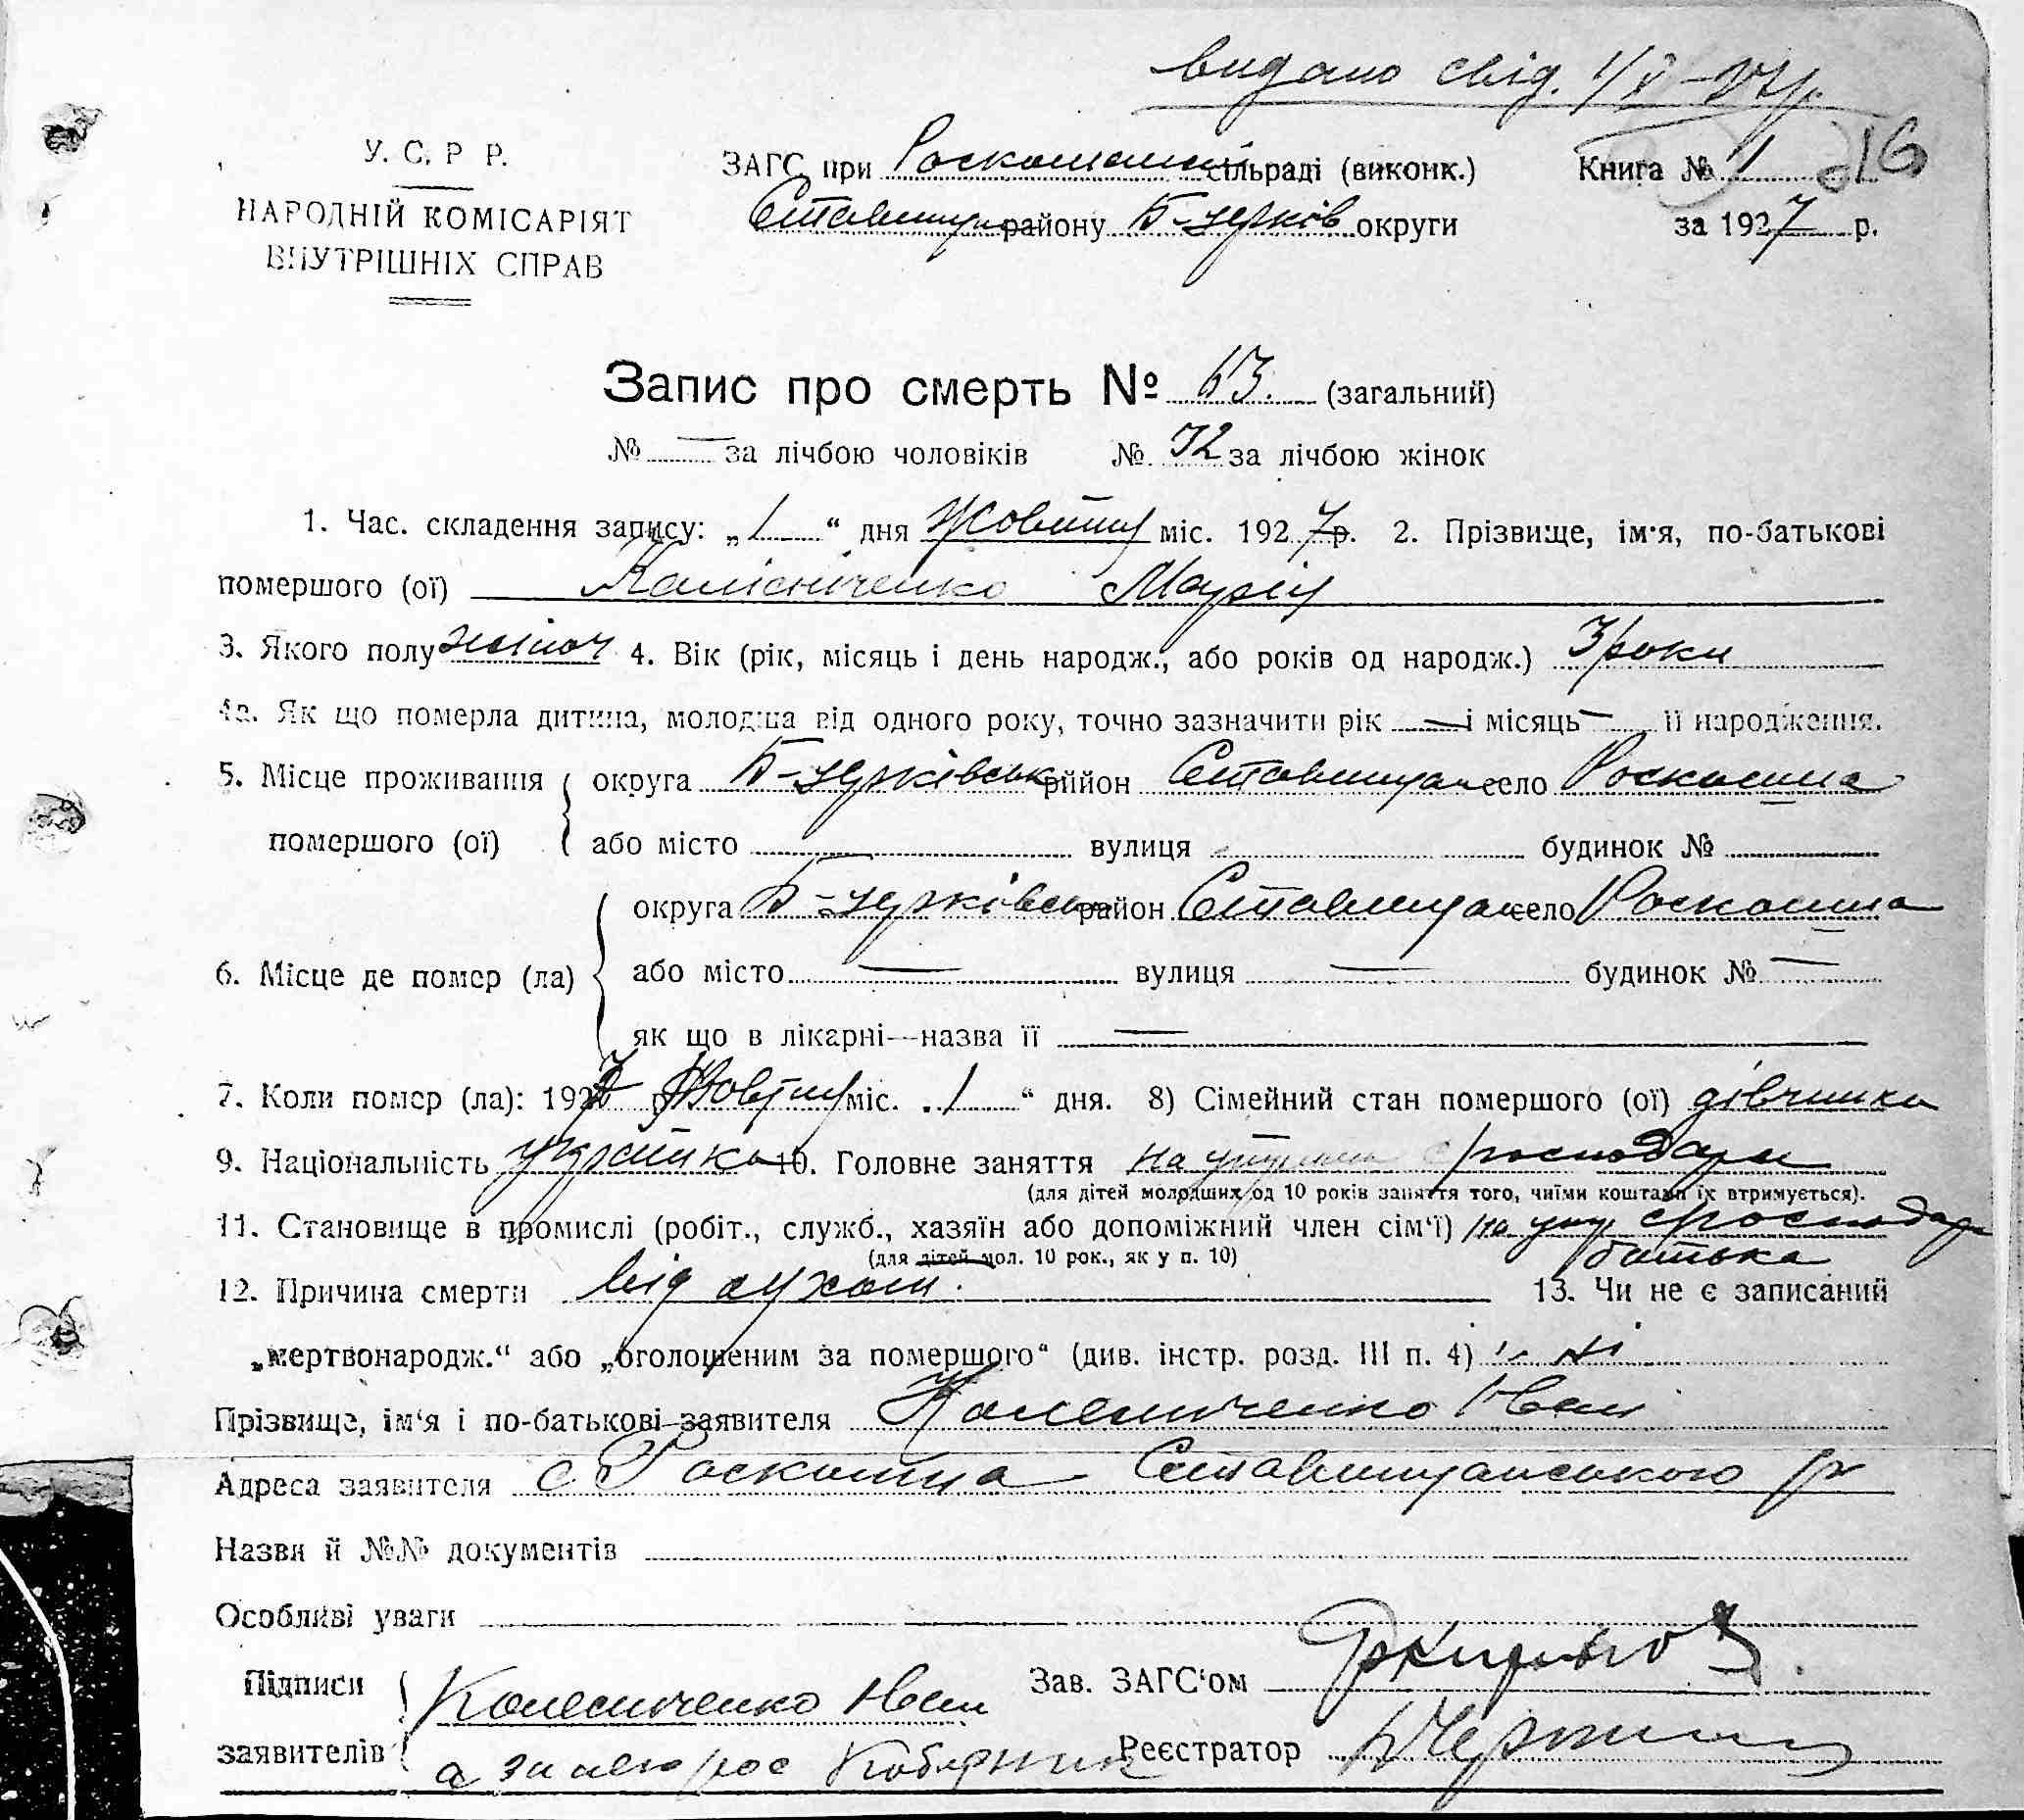 видано свід.
У. С. Р Р.
НАРОДНІЙ КОМІСАРІЯТ
ВНУТРІШНІХ СПРАВ
ЗАГС при сільраді (виконк.) Книга № 1 216
району Б-церків округи за 1927 р.
Запис про смерть № 63. (загальний)
№ — за лічбою чоловіків № 32 за лічбою жінок
1. Час. складення запису: „1“ дня Жовтня міс. 1927 р. 2. Прізвище, ім'я, по-батькові
помершого (ої) Марія
3. Якого полу жіноч 4. Вік (рік, місяць і день народж., або років од народж.) 3 роки
4а. Як що померла дитина, молодша від одного року, точно зазначити рік — і місяць — її народження.
5. Місце проживання округа Б-церківськ рййон Ставищан село Роскошна
помершого (ої) або місто вулиця будинок №
округа Б-церківськ район Ставищан село Роскошна
6. Місце де помер (ла) або місто — вулиця — будинок № —
як що в лікарні—назва її —
7. Коли помер (ла): 1927 р. Жовтня міс. „1“ дня. 8) Сімейний стан помершого (ої) дівчинка
9. Національність українка 10. Головне заняття на господари
(для дітей молодших од 10 років заняття того, чиїми коштами їх втримується).
11. Становище в промислі (робіт., служб., хазяїн або допоміжний член сім'ї) на господар
(для дітей мол. 10 рок., як у п. 10) батька
12. Причина смерти від 13. Чи не є записаний
„мертвонародж.“ або „оголошеним за помершого“ (див. інстр. розд. III п. 4) ні
Прізвище, ім'я і по-батькові заявителя Колесниченко Иван
Адреса заявителя с Роскошна Ставищанського р
Назви й №№ документів
Особливі уваги
Підписи Колесниченко Иван Зав. ЗАГС'ом
заявителів а за него рос Реєстратор